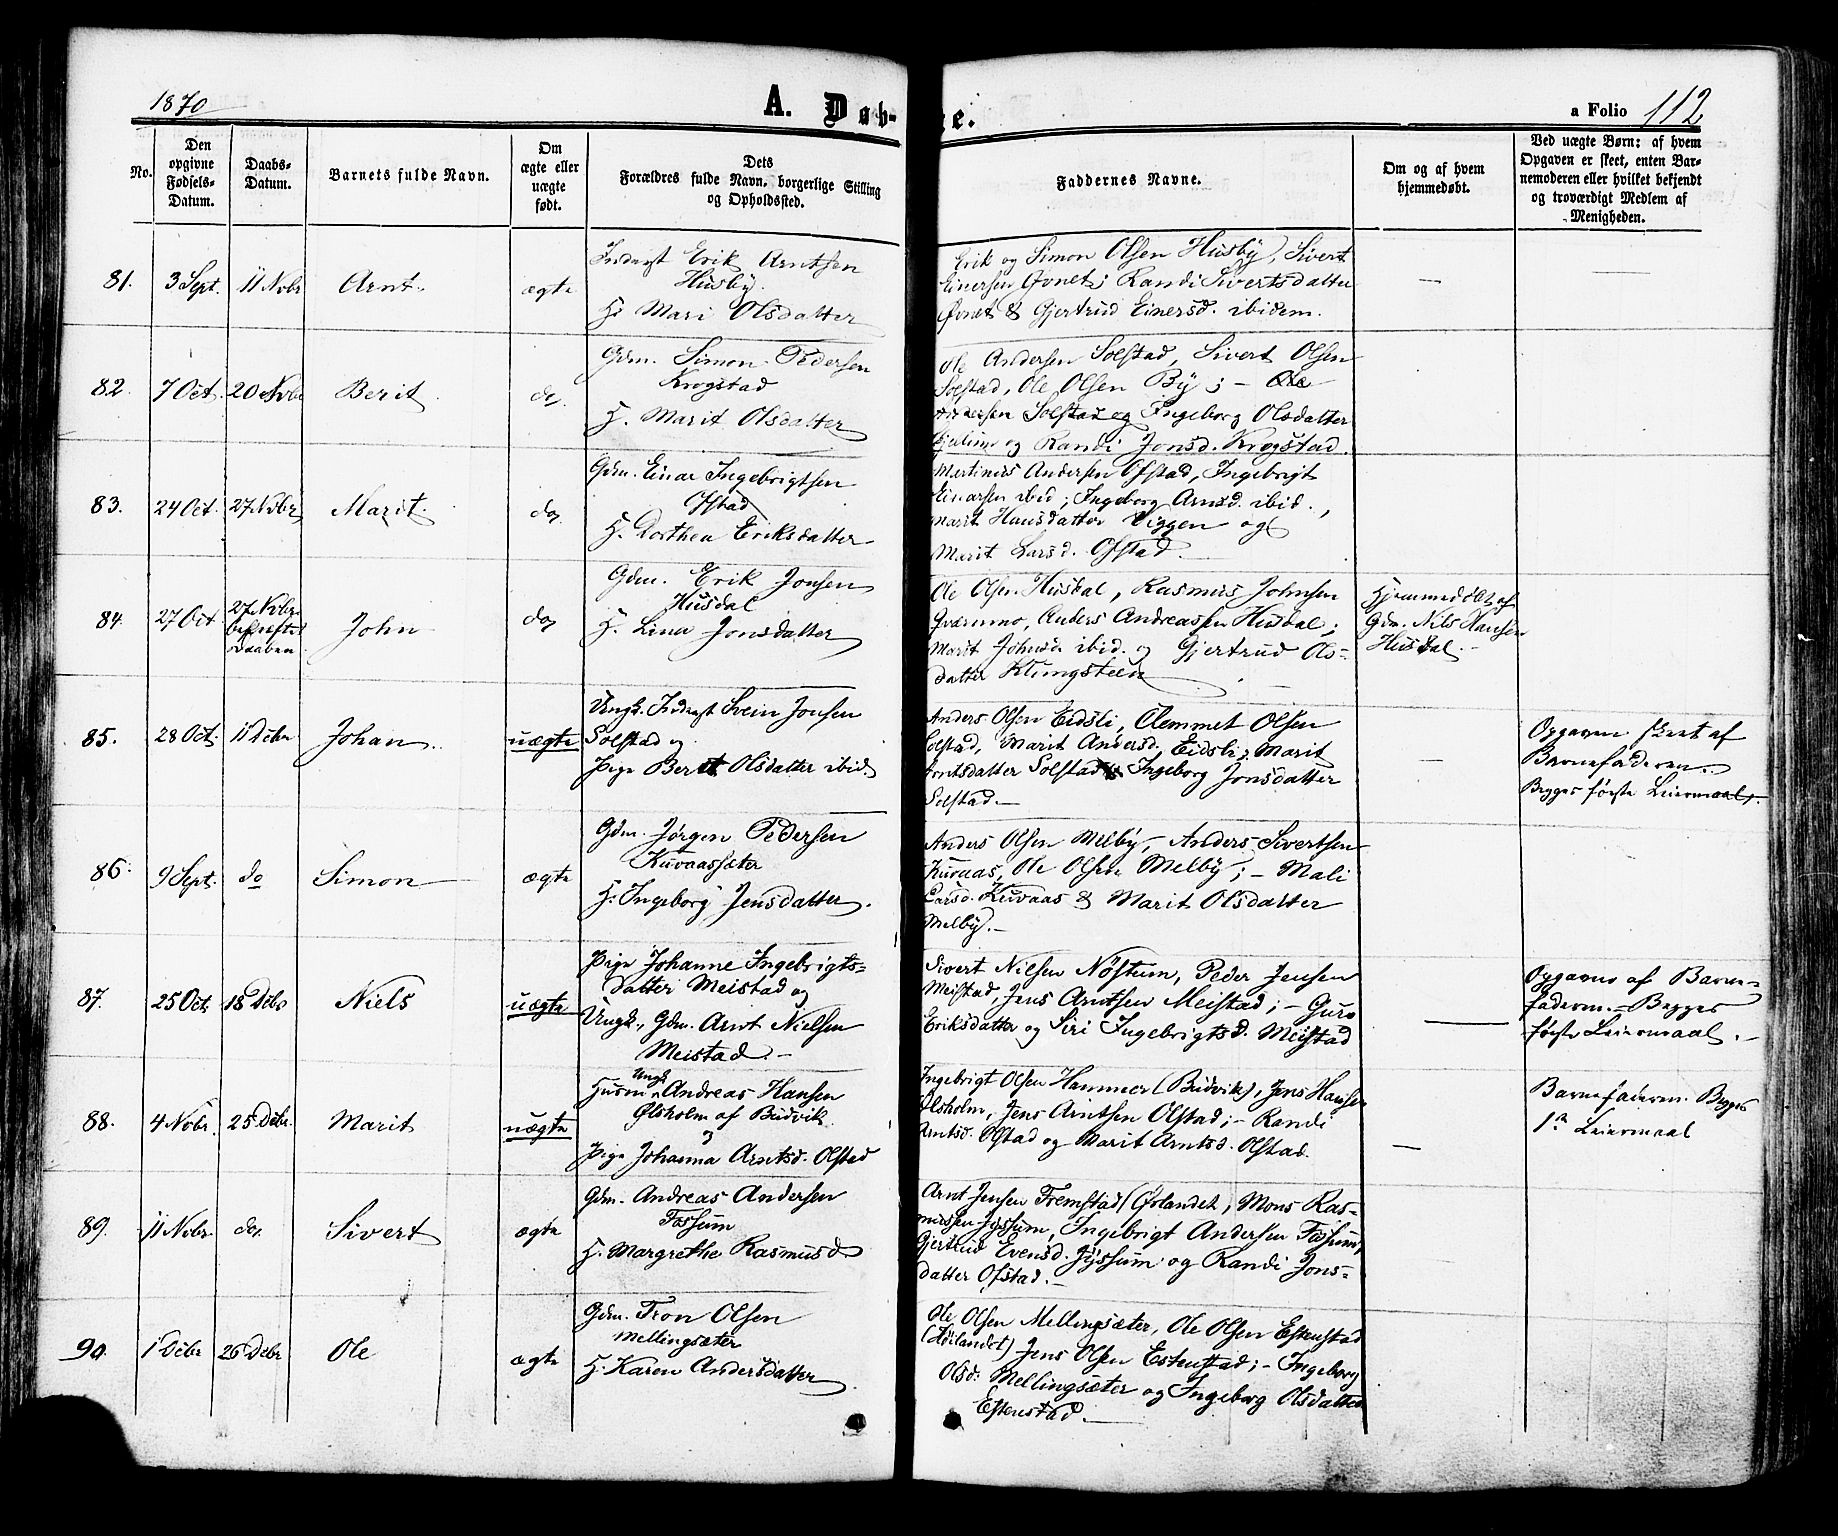 1870
A. Døb-
te.
a Folio 112
No.
Den opgivne Fødsels-Datum.
Daabs-Datum.
Barnets fulde Navn.
Om ægte eller uægte født.
Dets Forældres fulde Navn, borgerlige Stilling og Opholdssted.
Faddernes Navne.
Om og af hvem hjemmedøbt.
Ved uægte Børn: af hvem Opgaven er skeet, enten Barnemoderen eller hvilket bekjendt og troværdigt Medlem af Menigheden.
81. 3 Sept. 11 Nobr Arnt. ægte
Inderst Erik Arntsen
Husby.
H. Mari Olsdatter
Erik og Simon Olsen Husby, Sivert
Einersen Øvnet; Randi Sivertsdatter
Øvnet & Gjertrud Einersd. ibidem.
—
82. 7 Oct. 20 Nobr Berit do.
Gdm. Simon Pedersen
Krogstad
H. Marit Olsdatter
Ole Andersen Solstad, Sivert Olsen
Solstad, Ole Olsen By; – Ole
Andersen Solstad og Ingeborg Olsdatter
og Randi Jonsd. Krogstad.
83. 24 Oct. 27 Nobr Marit. do.
Gdm. Einar Ingebrigtsen
Ofstad
H. Dorthea Eriksdatter
Martinus Andersen Ofstad, Ingebrigt
Einarsen ibid; Ingeborg Arnsd. ibid.,
Marit Hansdatter Viggen og
Marit Larsd. Ofstad.
84. 27 Oct 27 Nobr
bekræftet
Daaben
John do
Gdm. Erik Jonsen
Husdal
H. Lina Jonsdatter
Ole Olsen Husdal, Rasmus Johnsen
Kværnmo, Anders Andreassen Husdal;
Marit Johnsd. ibid. og Gjertrud Ols-
datter Klungsteen
Hjemmedøbt af
Gdm. Nils Hansen
Husdal.
85. 28 Oct. 11 Debr Johan uægte
Ungk. Inderst Svein Jonsen
Solstad og
Pige Berit Olsdatter ibid.
Anders Olsen Eidsli, Clemmet Olsen
Solstad, Marit Andersd. Eidsli, Marit
Arntsdatter Solstad & Ingeborg Jonsdatter
Solstad.—
—
Opgaven skeet af
Barnefaderen.
Begges første Leiermaal.
86. 9 Sept. do Simon ægte
Gdm. Jørgen Pedersen
Kuvaassæter
H. Ingeborg Jensdatter.
Anders Olsen Melby, Anders Sivertsen
Kuvaas, Ole Olsen Melby; – Mali
Larsd. Kuvaas & Marit Olsdatter
Melby.—
87. 25 Oct 18 Debr Niels uægte
Pige Johanne Ingebrigts-
datter Meistad og
Ungk., Gdm. Arnt Nielsen
Meistad.—
Sivert Nilsen Nøstum, Peder Jensen
Meistad, Jens Arntsen Meistad; – Guro
Eriksdatter og Siri Ingebrigtsd. Meistad
—
Opgaven af Barne-
faderen.– Begges
første Leiermaal.—
88. 4 Nobr. 25 Debr. Marit uægte
Ungk
Husm. Andreas Hansen
Glsholm af Budvik
og
Pige Johanna Arntsd. Olstad
Ingebrigt Olsen Hammer (Budvik), Jens Hansen
Olsholm, Jens Arntsen Olstad; – Randi
Arntsd. Olstad og Marit Arntsd. Olstad.
—
Barnefaderen. Begges
1ste Leiermaal
89. 11 Nobr do. Sivert ægte
Gdm. Andreas Andersen
Fossum
H. Margrethe Rasmusd
Arnt Jensen Fremstad (Ørlandet, Mons Ras-
mussen Jyssum, Ingebrigt Andersen Fossum,
Gjertrud Evensd. Jyssum og Randi Jons-
datter Ofstad.—
90. 1 Debr 26 Debr Ole ægte
Gdm. Tron Olsen
Mellingsæter
H. Karen Andersdatter
Ole Olsen Mellingsæter, Ole Olsen Estenstad
(Høilandet) Jens Olsen Estenstad; – Ingeborg
Olsd. Mellingsæter og Ingeborg Olsdatter
Estenstad.—